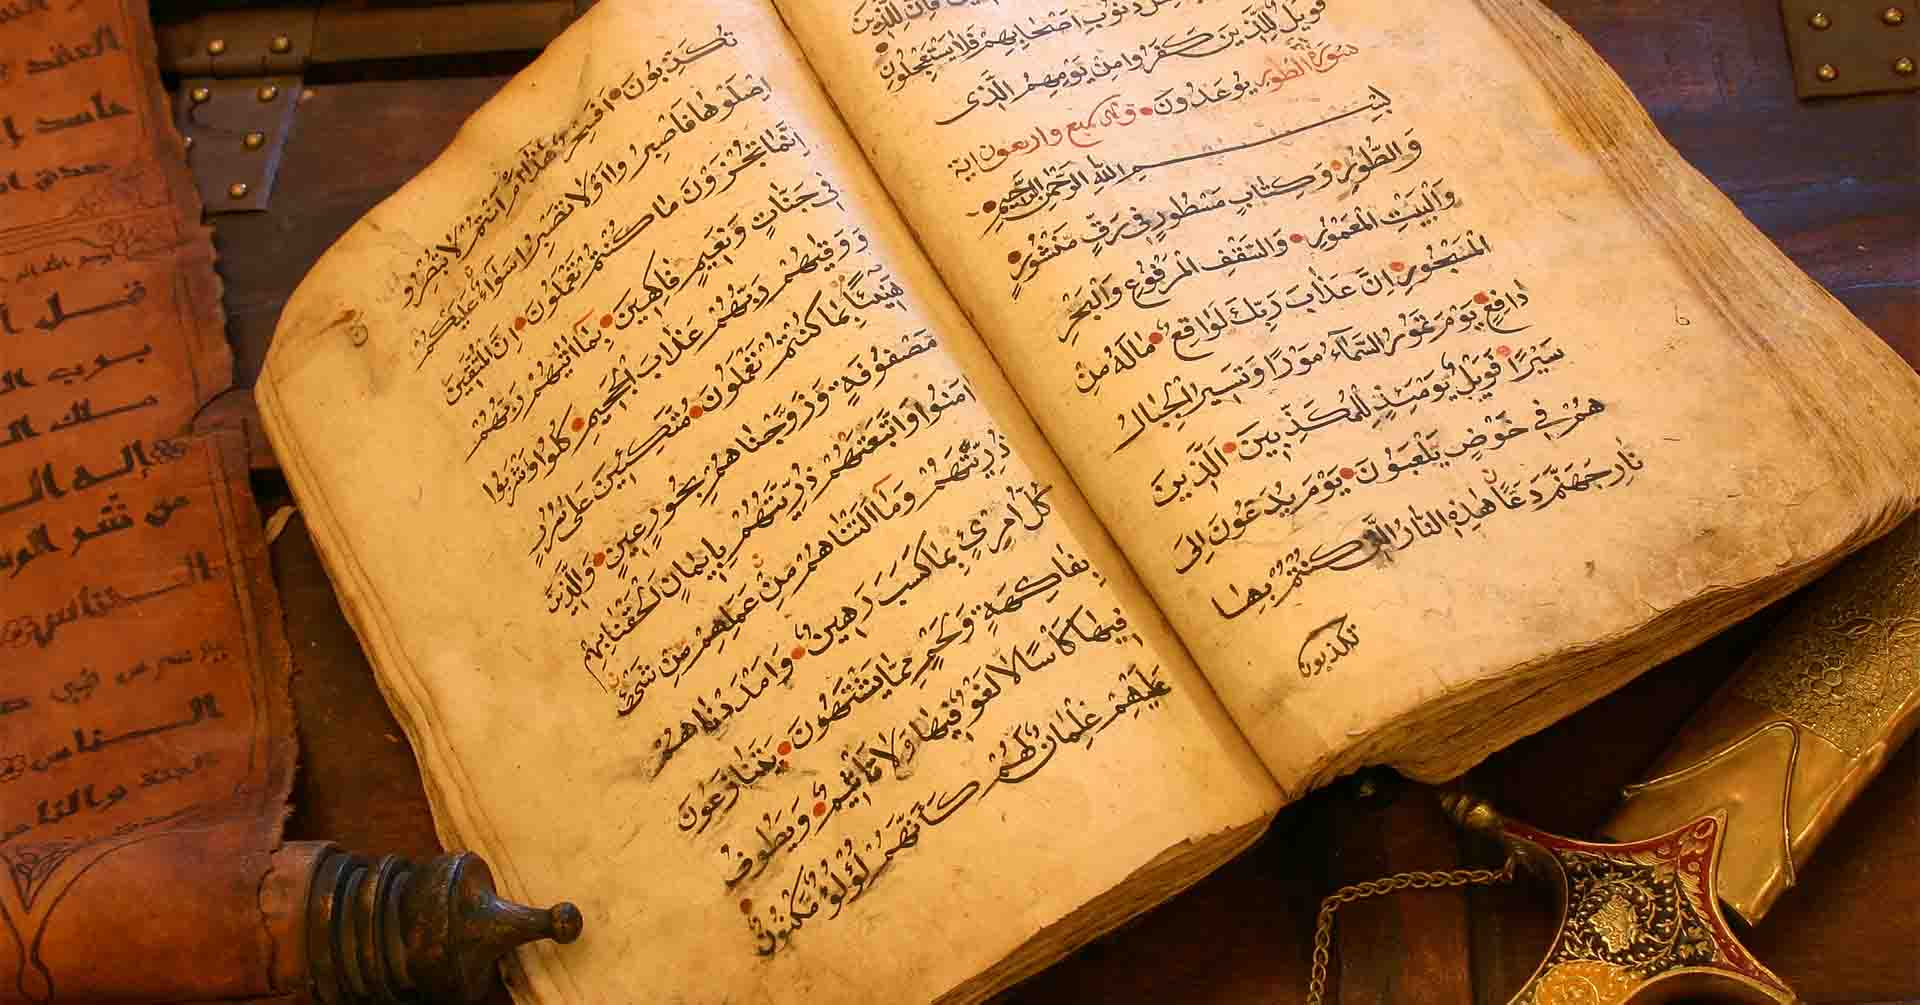 فَإِنَّ لِلَّذِينَ
ذَنُوبِ أَصْحَابِهِمْ فَلَا يَسْتَعْجِلُونِ
فَوَيْلٌ لِلَّذِينَ كَفَرُوا مِنْ يَوْمِهِمُ الَّذِى
سورة الطور يُوعَدُونَ وهى سبع واربعون اية
بِسْمِ اللهِ الرَّحْمٰنِ الرَّحِيمِ
وَالطُّورِ وَكِتَابٍ مَسْطُورٍ فِى رَقٍّ مَنْشُورٍ
وَالْبَيْتِ الْمَعْمُورِ وَالسَّقْفِ الْمَرْفُوعِ وَالْبَحْرِ
الْمَسْجُورِ اِنَّ عَذَابَ رَبِّكَ لَوَاقِعٌ مَالَهُ مِنْ
دَافِعٍ يَوْمَ تَمُورُ السَّمَآءُ مَوْرًا وَتَسِيرُ الْجِبَالُ
سَيْرًا فَوَيْلٌ يَوْمَئِذٍ لِلْمُكَذِّبِينَ الَّذِينَ
هُمْ فِى خَوْضٍ يَلْعَبُونَ يَوْمَ يُدَعُّونَ اِلَى
نَارِ جَهَنَّمَ دَعًّا هٰذِهِ النَّارُ الَّتِى كُنْتُمْ بِهَا
تكذبون
تُكَذِّبُونَ اَفَسِحْرٌ هٰذَا اَمْ اَنْتُمْ لَا تُبْصِرُو
نَ
اِصْلَوْهَا فَاصْبِرُوا اَوْلَا تَصْبِرُوا سَوَاءٌ عَلَيْكُمْ
اِنَّمَا تُجْزَوْنَ مَا كُنْتُمْ تَعْمَلُونَ اِنَّ الْمُتَّقِينَ
فِى جَنَّاتٍ وَنَعِيمٍ فَاكِهِينَ بِمَا اٰتٰيهُمْ رَبُّهُمْ
وَوَقٰيهُمْ رَبُّهُمْ عَذَابَ الْجَحِيمِ كُلُوا وَاشْرَبُوا
هَنِيئًا بِمَا كُنْتُمْ تَعْمَلُونَ مُتَّكِئِينَ عَلٰى سُرُرٍ
مَصْفُوفَةٍ وَزَوَّجْنَاهُمْ بِحُورٍ عِينٍ وَالَّذِينَ
اٰمَنُوا وَاتَّبَعَتْهُمْ ذُرِّيَّتُهُمْ بِاِيمَانٍ اَلْحَقْنَا بِهِمْ
ذُرِّيَّتَهُمْ وَمَا اَلَتْنَاهُمْ مِنْ عَمَلِهِمْ مِنْ شَىْءٍ
كُلُّ امْرِئٍ بِمَا كَسَبَ رَهِينٌ وَاَمْدَدْنَاهُمْ
بِفَاكِهَةٍ وَلَحْمٍ مِمَّا يَشْتَهُونَ يَتَنَازَعُونَ
فِيهَا كَأْسًا لَا لَغْوٌ فِيهَا وَلَا تَأْثِيمٌ وَيَطُوفُ
عَلَيْهِمْ غِلْمَانٌ لَهُمْ كَاَنَّهُمْ لُؤْلُؤٌ مَكْنُونٌ
العقد
حاسد
ملك
إله
من شر
الخناس
س في
الناس
الجنة والناس